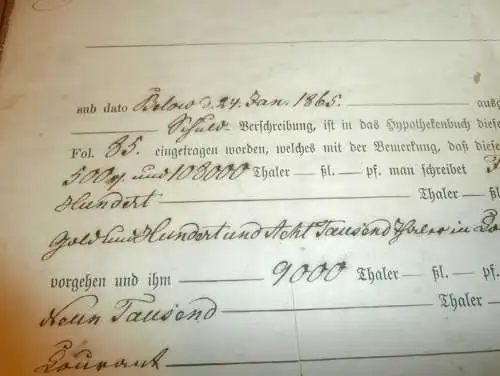 sub dato Below d. 24. Jan. 1865. ausg
Schuld-Verschreibung, ist in das Hypothekenbuch diese
Fol. 85. eingetragen worden, welches mit der Bemerkung, daß diese
500 und 108000 Thaler — ßl. — pf. man schreibet
Hundert Thaler — ßl
Gold und Hundert und Acht Tausend Thaler in
vorgehen und ihm — 9000 Thaler — ßl. — pf.
Neun Tausend Thaler —
Courant